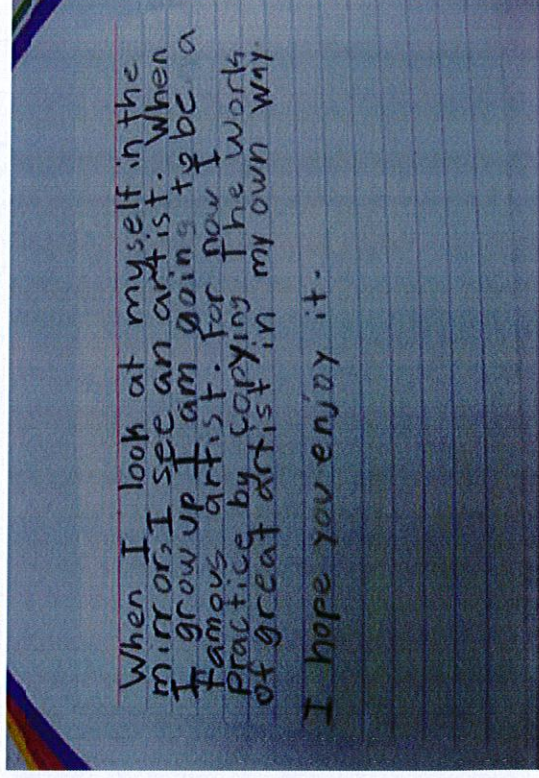 When I look at myself in the
mirror, I see an artist. When
I grow up I am going to be a
famous artist. For now I
practice by copying the work
of great artist in my own way.
I hope you enjoy it.